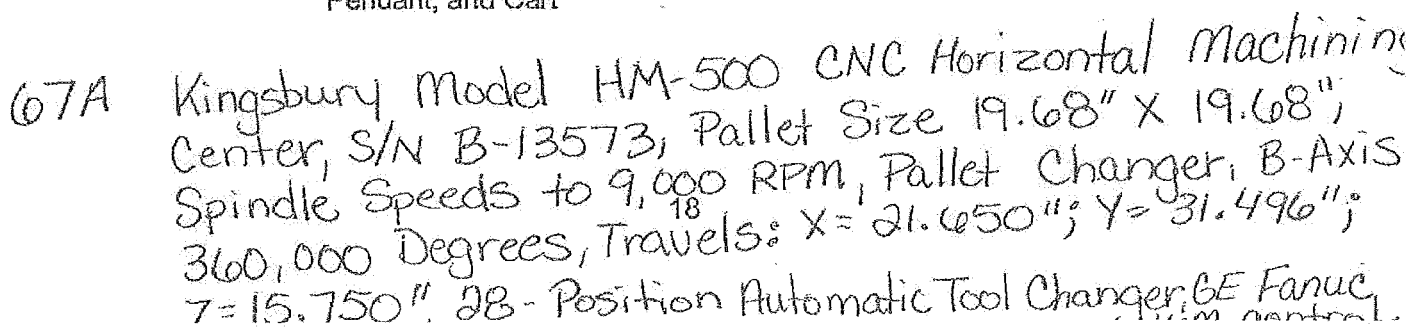 Pendant, and Cart
67A Kingsbury Model HM-500 CNC Horizontal Machining
Center, S/N B-13573, Pallet Size 19.68" X 19.68",
Spindle Speeds to 9,000 RPM, Pallet Changer, B-Axis
18
360,000 Degrees, Travels: X= 21.650"; Y= 31.496";
Z=15.750", 28-Position Automatic Tool Changer, GE Fanuc,